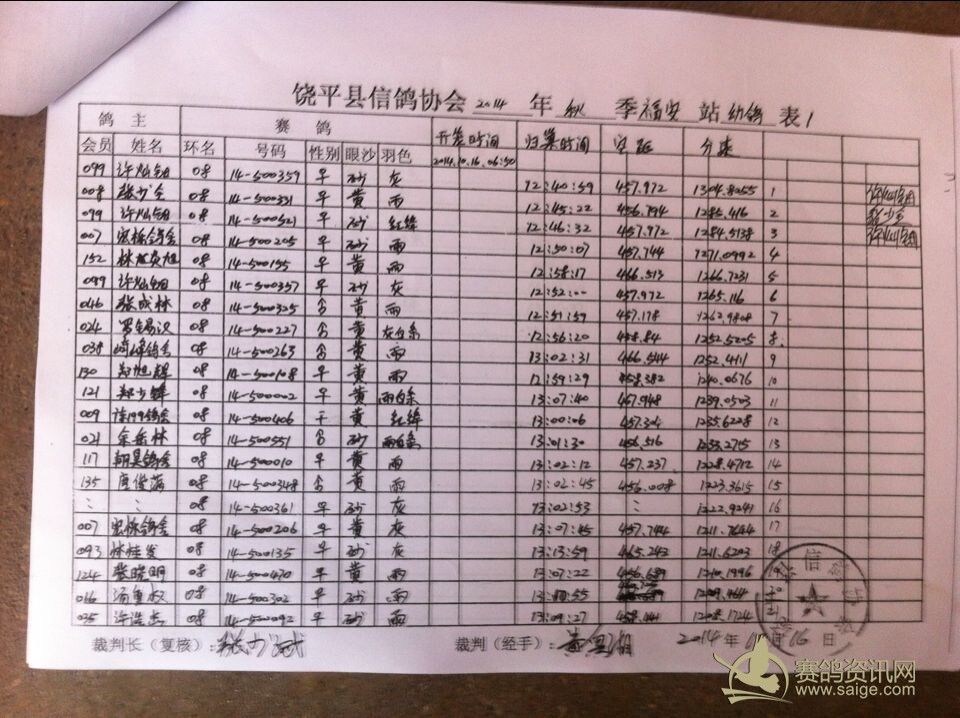 饶平县信鸽协会 2014 年 秋 季 福安 站 幼鸽 表 1
鸽 主 赛 鸽 开笼时间 归巢时间 空距 分速
会员 姓名 环名 号码 性别 眼沙 羽色 2014.10.16.06:50
099 许灿钿 08 14-500359 砂 灰 12:40:59 457.972 1304.8255 1
008 张少全 08 14-500331 黄 雨 12:45:22 456.794 1285.416 2
099 许灿钿 08 14-500521 砂 红绛 12:46:32 457.972 1284.5138 3
007 宏栋鸽舍 08 14-500205 砂 雨 12:50:07 457.744 1271.0992 4
152 08 14-500155 黄 雨 12:58:17 466.513 1266.7231 5
099 许灿钿 08 14-500357 砂 灰 12:52:00 457.972 1265.116 6
046 张成林 08 14-500325 黄 雨 12:51:59 457.178 1262.9808 7
024 08 14-500227 黄 灰白条 12:56:20 458.84 1252.5205 8
038 鸽舍 08 14-500263 黄 雨 13:02:31 466.544 1252.411 9
130 郑旭辉 08 14-500108 黄 雨 12:59:29 458.382 1240.0676 10
121 郑少辉 08 14-500002 黄 雨白条 13:07:40 467.948 1239.0503 11
009 鸽舍 08 14-500406 黄 红绛 13:00:06 457.304 1235.6228 12
021 余岳林 08 14-500551 砂 雨白条 13:01:30 456.516 1233.2715 13
117 鸽舍 08 14-500010 黄 雨 13:02:12 457.237 1228.4712 14
135 08 14-500348 黄 雨 13:02:45 456.008 1223.3615 15
08 14-500361 砂 灰 13:02:53 1222.9241 16
007 宏栋鸽舍 08 14-500206 黄 灰 13:07:45 457.744 1211.7644 17
093 林桂发 08 14-500135 砂 灰 13:13:59 465.243 1211.6203 18
124 张晓明 08 14-500470 黄 雨 13:07:22 456.689 1210.1996
066 08 14-500302 砂 雨
035 许浩杰 08 14-500092 砂 雨 13:09:27 458.441 1208.1724 21
裁判长（复核）： 裁判（经手）： 2014 年 月 16 日
赛鸽资讯网
www.saige.com